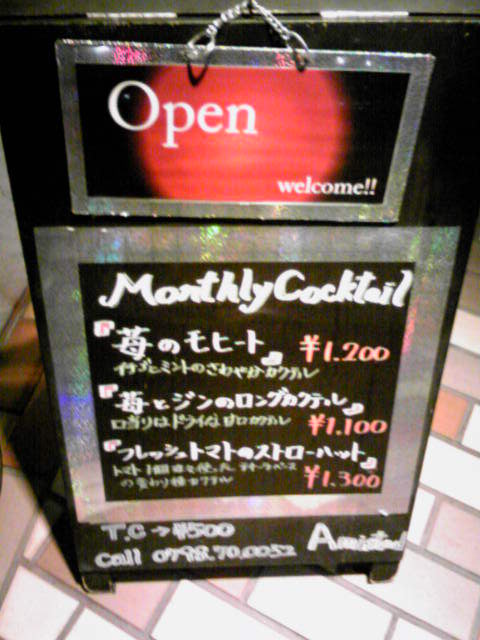 Open
welcome!!
Monthly Cocktail
『苺のモヒート』 ¥1.200
イチゴとミントのさわやかカクテル
『苺とジンのロングカクテル』
口当りはドライな甘口カクテル ¥1.100
『フレッシュトマトのストローハット』
トマト1個 ¥1.300
の変わり種カクテル
T.C→¥500
call 0798.70.0052 Amistad